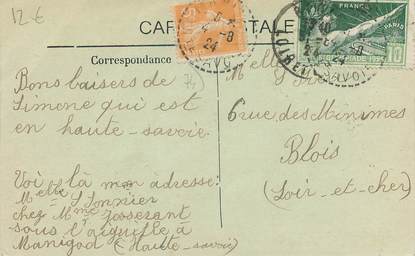 12 €
CARTE POSTALE
Correspondance
Bons baisers de
Simone qui est
en haute-savoie
Voi là mon adresse.
Melle S
chez Mme
sous l'aiguille à
Manigod (Haute-savoie)
FRANCE
PARIS
1924
10
24
SAVOIE
Melle
6 rue des Minimes
Blois
(Loir-et-cher)